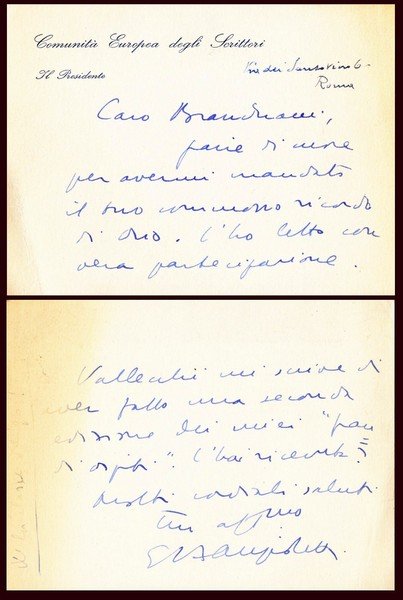 Comunità Europea degli Scrittori
Il Presidente
Via dei Sansovino 6
Roma
Caro
grazie di cuore
per avermi mandato
il tuo commosso ricordo
di . L'ho letto con
vera partecipazione.
Vallecchi mi scrive di
aver fatto una seconda
edizione dei miei
di . L'hai ricevuta?
Molti cordiali saluti
tuo aff.mo